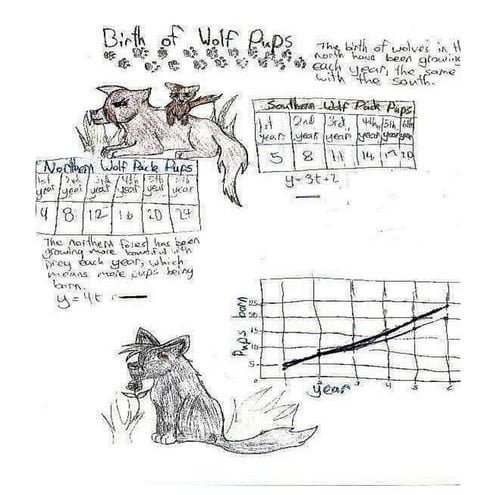 Birth of Wolf Pups
The birth of wolves in th
north have been growing
each year, the same
with the south.
Southern Wolf Pack Pups
1st year 2nd year 3rd year 4th year 5th year 6th year
5 8 11 14 17 20
y = 3t + 2
Northern Wolf Pack Pups
1st year 2nd year 3rd year 4th year 5th year 6th year
4 8 12 16 20 24
The northern forest has been
growing more bountiful with
prey each year, which
means more pups being
born.
y = 4t
Pups born
25
20
15
10
5
0
1 2 3 4 5 6
year